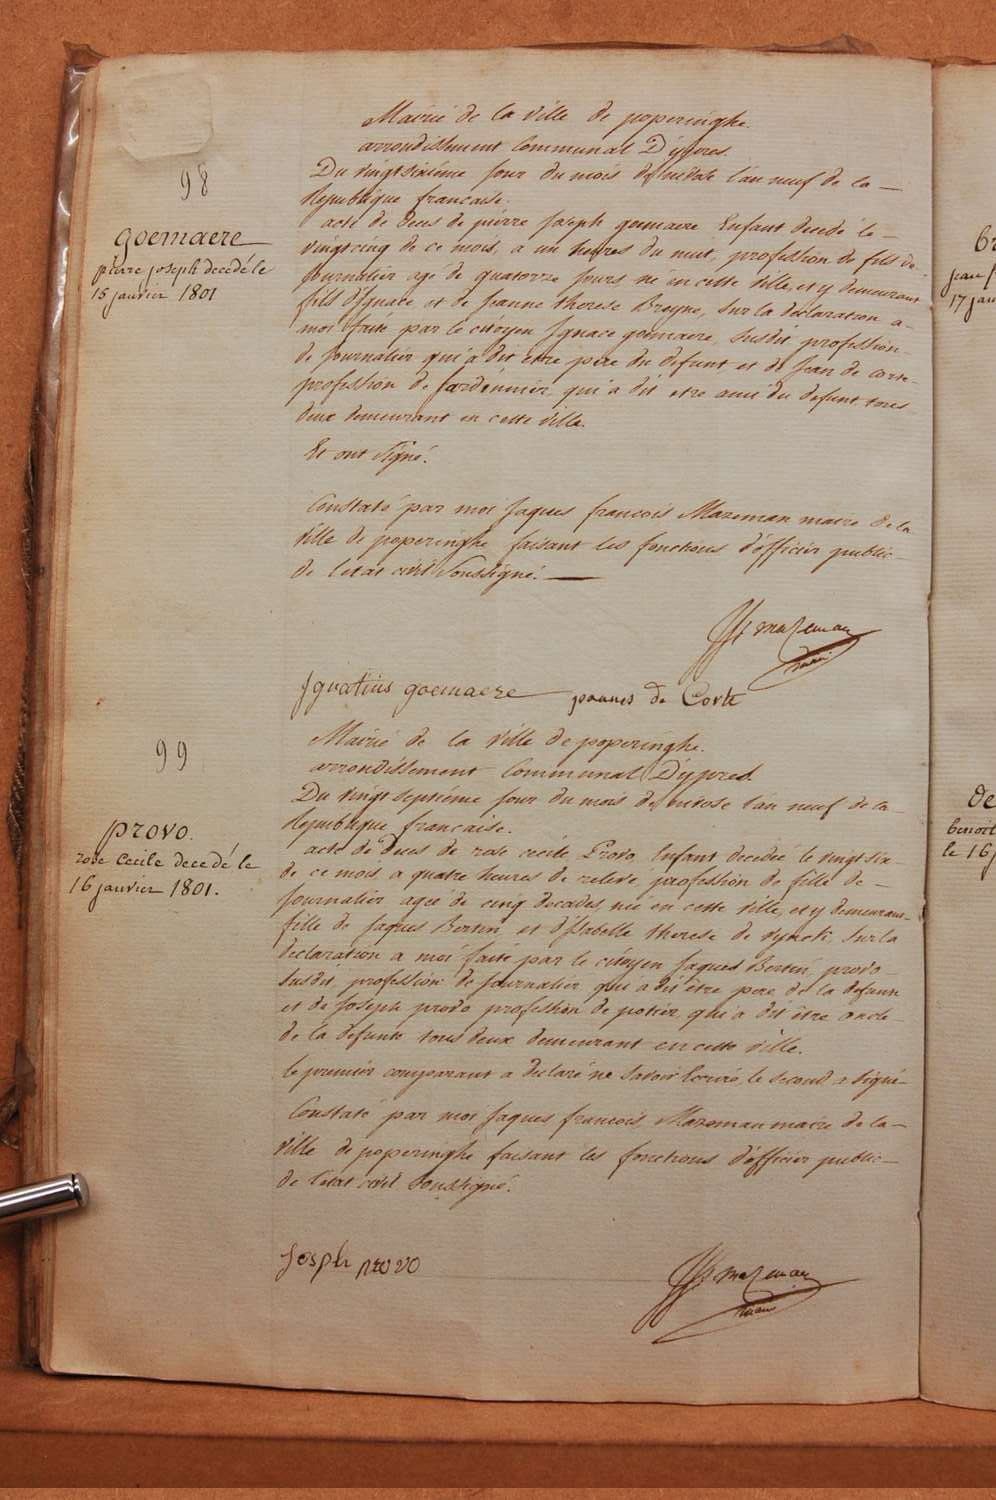 98
goemaere
pierre joseph decedé le
15 janvier 1801
Mairie de la ville de poperinghe.
arrondissement Communal D'ypres.
Du vingtsixiéme jour du mois de nivôse l'an neuf de la —
Republique francaise.
acte de deces de pierre Joseph goemaere Enfant decedé le —
vingtcinq de ce mois, a un heures du nuit, profession de fils de
Journalier agé de quatorze jours, né en cette ville, et y demeurant
fils d'Ignace et de Jeanne therese Breyne, sur la declaration a
moi faite par le citoyen Ignace goemaere, susdit profession
de journalier qui a dit etre pere du defunt et de Jean de corte
profession de Jardinnier, qui a dit etre ami du defunt tous
deux demeurant en cette ville.
Et ont signé.
Constaté par moi Jaques francois Mazeman maire de la
ville de poperinghe faisant les fonctions d'officier public
de l'etat civil soussigné. —
JF mazeman
maire
Ignatius goemaere joannes de Corte
99
provo.
rose Cecile decedé le
16 janvier 1801.
Mairie de la ville de poperinghe.
arrondissement Communal D'ypres.
Du vingt septiéme jour du mois de nivose l'an neuf de la —
Republique francaise.
acte de deces de rose cecile Provo Enfant decedée le vingt six
de ce mois a quatre heures de relevé, profession de fille de —
journalier agée de cinq decades, née en cette ville, et y demeurant
fille de Jaques Bertin, et d'Isabelle therese de vynck, sur la
declaration a moi faite par le citoyen Jaques Bertin provo
susdit, profession de journalier qui a dit être pere de la defunte
et de Joseph provo profession de potier, qui a dit être oncle
de la defunte tous deux demeurant en cette ville.
le premier comparant a declaré ne savoir Ecrire, le second a signé
Constaté par moi Jaques francois Mazeman maire de la —
ville de poperinghe faisant les fonctions d'officier public —
de l'etat civil soussigné.
Joseph provo
JF mazeman
maire
jean
17 jan
de
benoit
le 16 j